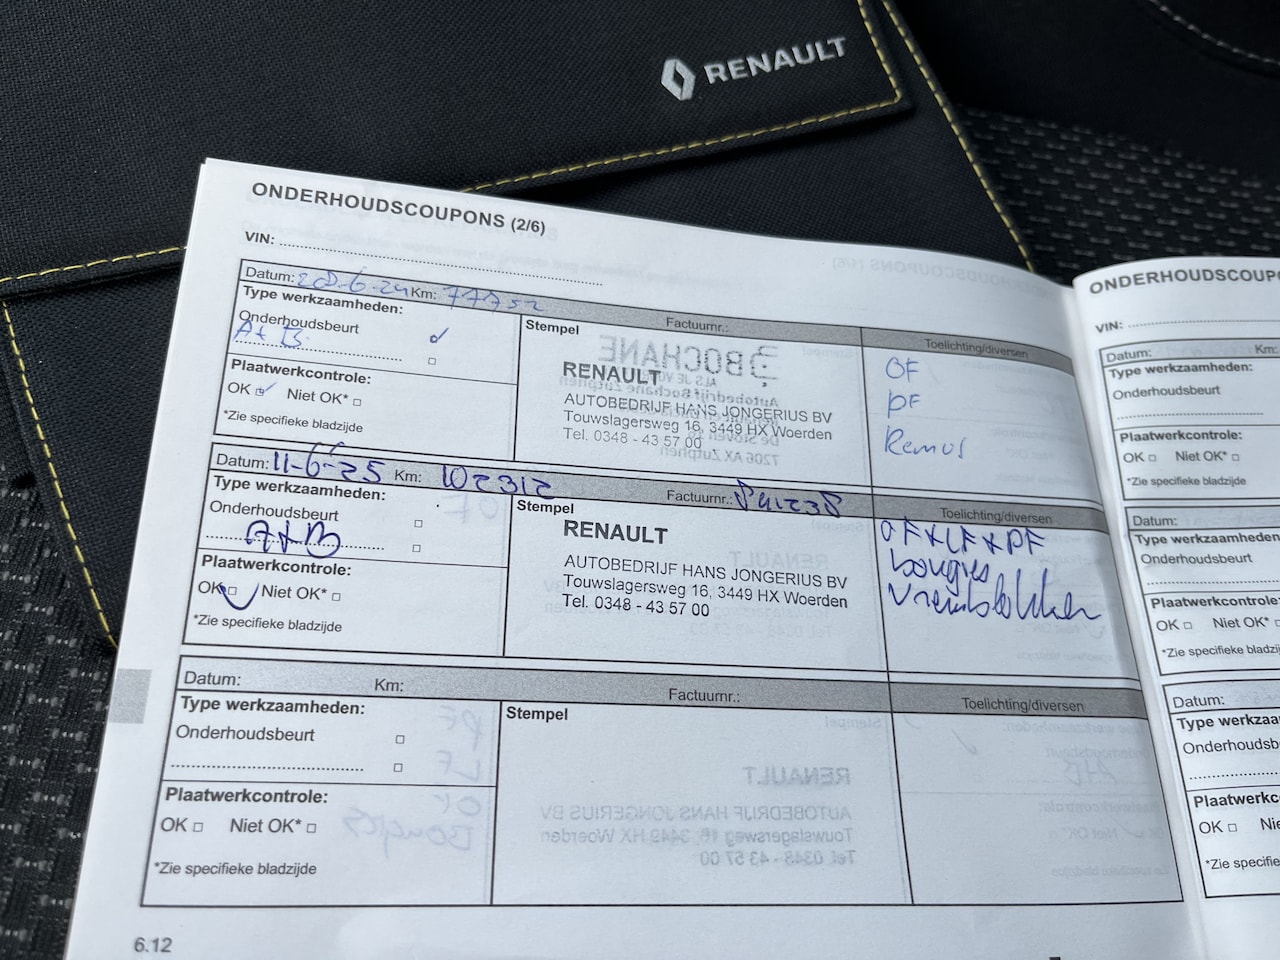 RENAULT
ONDERHOUDSCOUPONS (2/6)
VIN:
Datum: 20-6-24 Km: 77752 Factuurnr.:
Type werkzaamheden:
Onderhoudsbeurt
A+B
Plaatwerkcontrole:
OK Niet OK*
*Zie specifieke bladzijde
Stempel
RENAULT
AUTOBEDRIJF HANS JONGERIUS BV
Touwslagersweg 16, 3449 HX Woerden
Tel. 0348 - 43 57 00
Toelichting/diversen
OF
PF
Remvls
Datum: 11-6-25 Km: 102312 Factuurnr.:
Type werkzaamheden:
Onderhoudsbeurt
A+B
Plaatwerkcontrole:
OK Niet OK*
*Zie specifieke bladzijde
Stempel
RENAULT
AUTOBEDRIJF HANS JONGERIUS BV
Touwslagersweg 16, 3449 HX Woerden
Tel. 0348 - 43 57 00
Toelichting/diversen
OF+LF+PF
bougies
Datum: Km: Factuurnr.:
Type werkzaamheden:
Onderhoudsbeurt
Plaatwerkcontrole:
OK Niet OK*
*Zie specifieke bladzijde
Stempel
Toelichting/diversen
6.12
ONDERHOUDSCOUPO
VIN:
Datum: Km:
Type werkzaamheden:
Onderhoudsbeurt
Plaatwerkcontrole:
OK Niet OK*
*Zie specifieke bladzijde
Datum:
Type werkzaamheden:
Onderhoudsbeurt
Plaatwerkcontrole:
OK Niet OK*
*Zie specifieke bladzij
Datum:
Type werkzaa
Onderhoudsb
Plaatwerkcontrol
OK Nie
*Zie specifieke